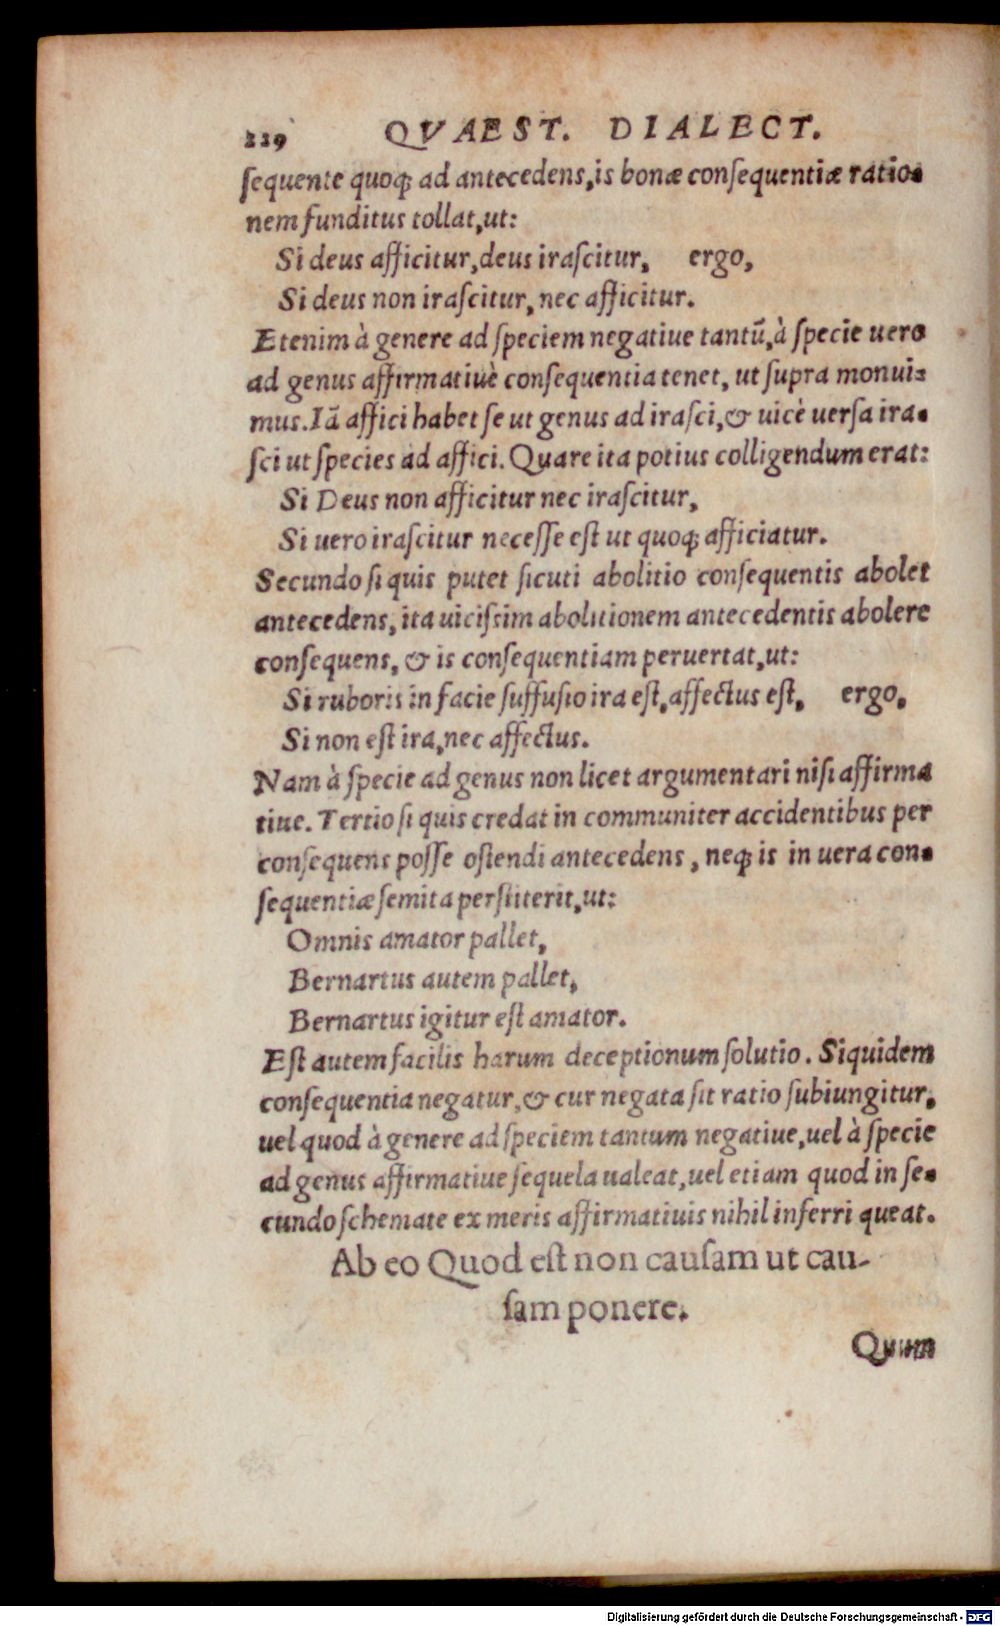 239 QVAEST. DIALECT.
sequente quoqꝫ ad antecedens, is bonæ consequentiæ ratio-
nem funditus tollat, ut:
Si deus afficitur, deus irascitur, ergo,
Si deus non irascitur, nec afficitur.
Etenim à genere ad speciem negatiue tantũ, à specie uero
ad genus affirmatiuè consequentia tenet, ut supra monui-
mus. Iã affici habet se ut genus ad irasci, & uicè uersa ira-
sci ut species ad affici. Quare ita potius colligendum erat:
Si Deus non afficitur nec irascitur,
Si uero irascitur necesse est ut quoqꝫ afficiatur.
Secundo si quis putet sicuti abolitio consequentis abolet
antecedens, ita uicissim abolitionem antecedentis abolere
consequens, & is consequentiam peruertat, ut:
Si ruboris in facie suffusio ira est, affectus est, ergo,
Si non est ira, nec affectus.
Nam à specie ad genus non licet argumentari nisi affirma
tiue. Tertio si quis credat in communiter accidentibus per
consequens posse ostendi antecedens, neqꝫ is in uera con-
sequentiæ semita perstiterit, ut:
Omnis amator pallet,
Bernartus autem pallet,
Bernartus igitur est amator.
Est autem facilis harum deceptionum solutio. Siquidem
consequentia negatur, & cur negata sit ratio subiungitur,
uel quod à genere ad speciem tantum negatiue, uel à specie
ad genus affirmatiue sequela ualeat, uel etiam quod in se-
cundo schemate ex meris affirmatiuis nihil inferri queat.
Ab eo Quod est non causam ut cau-
sam ponere.
Quum
Digitalisierung gefördert durch die Deutsche Forschungsgemeinschaft - DFG